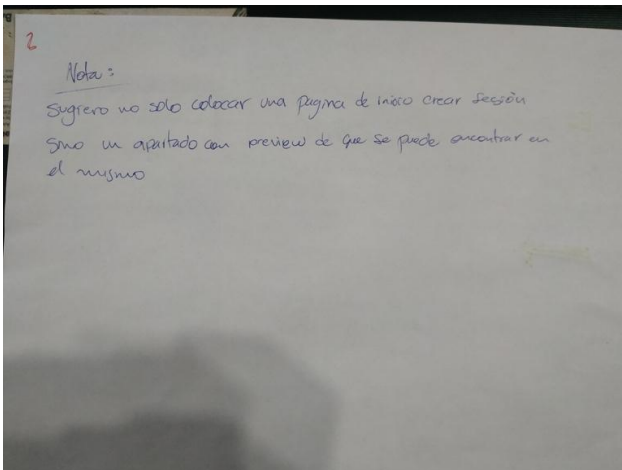 2
Nota:
Sugiero no solo colocar una pagina de inicio crear sesión
sino un apartado con preview de que se puede encontrar en
el mismo